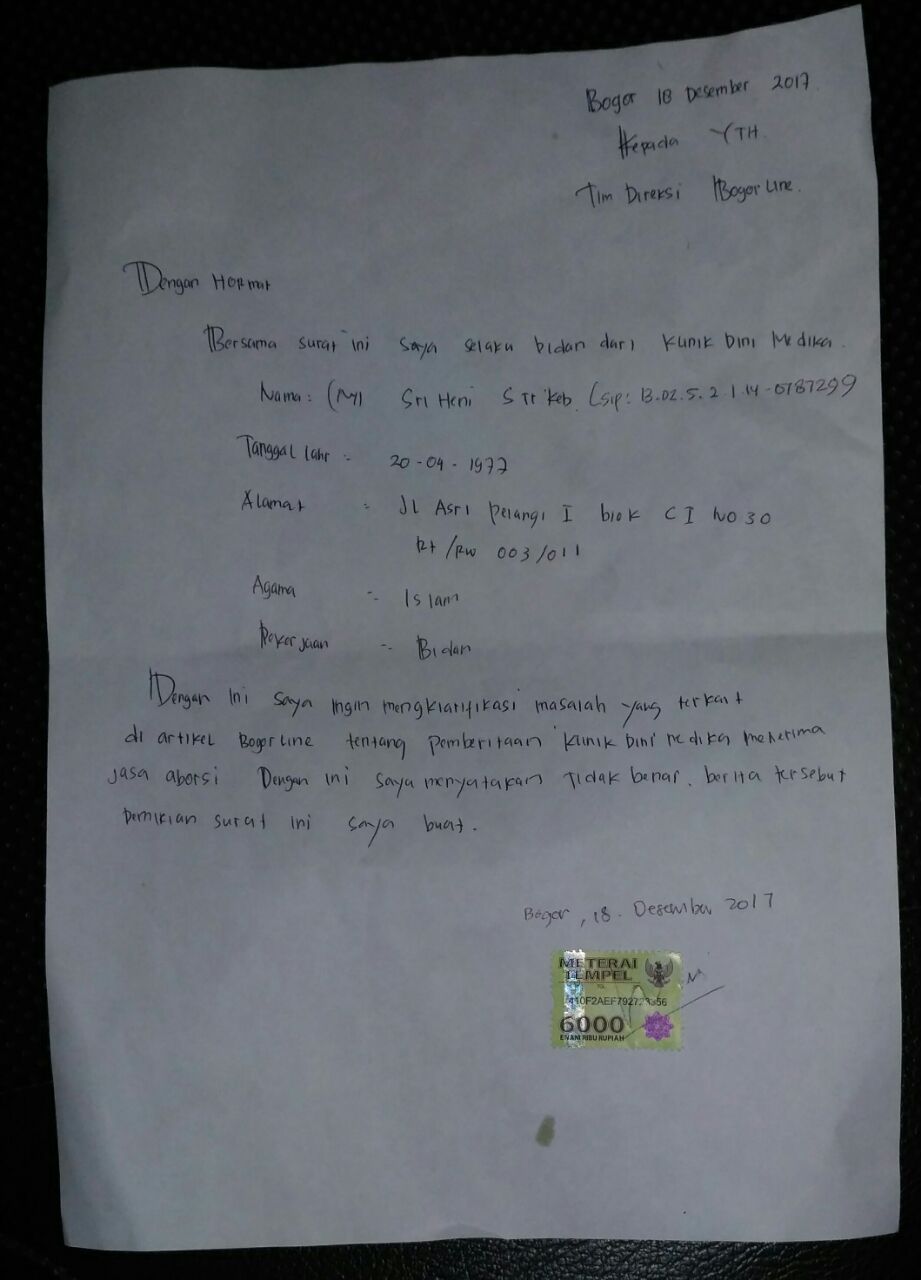 Bogor 18 Desember 2017
Kepada YTH.
Tim Direksi Bogor Line.
Dengan Hormat
Bersama surat ini saya selaku bidan dari Klinik Dini Medika.
Nama: (NY) Sri Heni S Tr Keb. (Sip: 13.02.5.2.1.14-0787299
Tanggal lahr : 20-04-1977
Alamat : JL Asri Pelangi I blok C I NO 30
Rt/Rw 003/011
Agama : Islam
Pekerjaan : Bidan
Dengan ini saya ingin mengklarifikasi masalah yang terkait
di artikel Bogor Line tentang pemberitaan Klinik Dini Medika menerima
jasa aborsi Dengan ini saya menyatakan Tidak benar. berita tersebut
Demikian surat ini saya buat.
Bogor, 18. Desember 2017
METERAI
TEMPEL
6000
ENAM RIBU RUPIAH